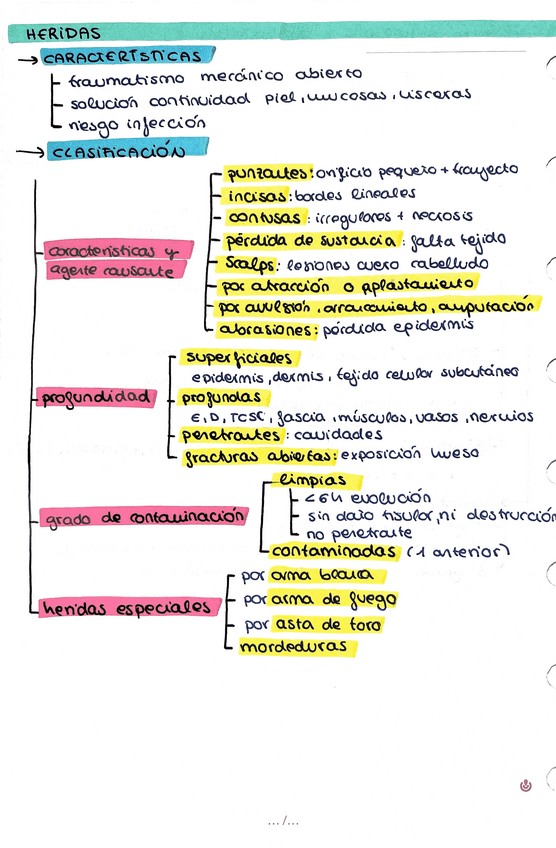 HERIDAS
→ CARACTERÍSTICAS
traumatismo mecánico abierto
solución continuidad piel, mucosas, vísceras
riesgo infección
→ CLASIFICACIÓN
características y agente causante
punzantes: orificio pequeño + trayecto
incisas: bordes lineales
contusas: irregulares + necrosis
pérdida de sustancia: falta tejido
Scalps: lesiones cuero cabelludo
por atracción o aplastamiento
por avulsión, arrancamiento, amputación
abrasiones: pérdida epidermis
profundidad
superficiales
epidermis, dermis, tejido celular subcutáneo
profundas
E, D, TCSC, fascia, músculos, vasos, nervios
penetrantes: cavidades
fracturas abiertas: exposición hueso
grado de contaminación
limpias
<6h evolución
sin daño tisular, ni destrucción
no penetrante
contaminadas (1 anterior)
heridas especiales
por arma blanca
por arma de fuego
por asta de toro
mordeduras
.../...